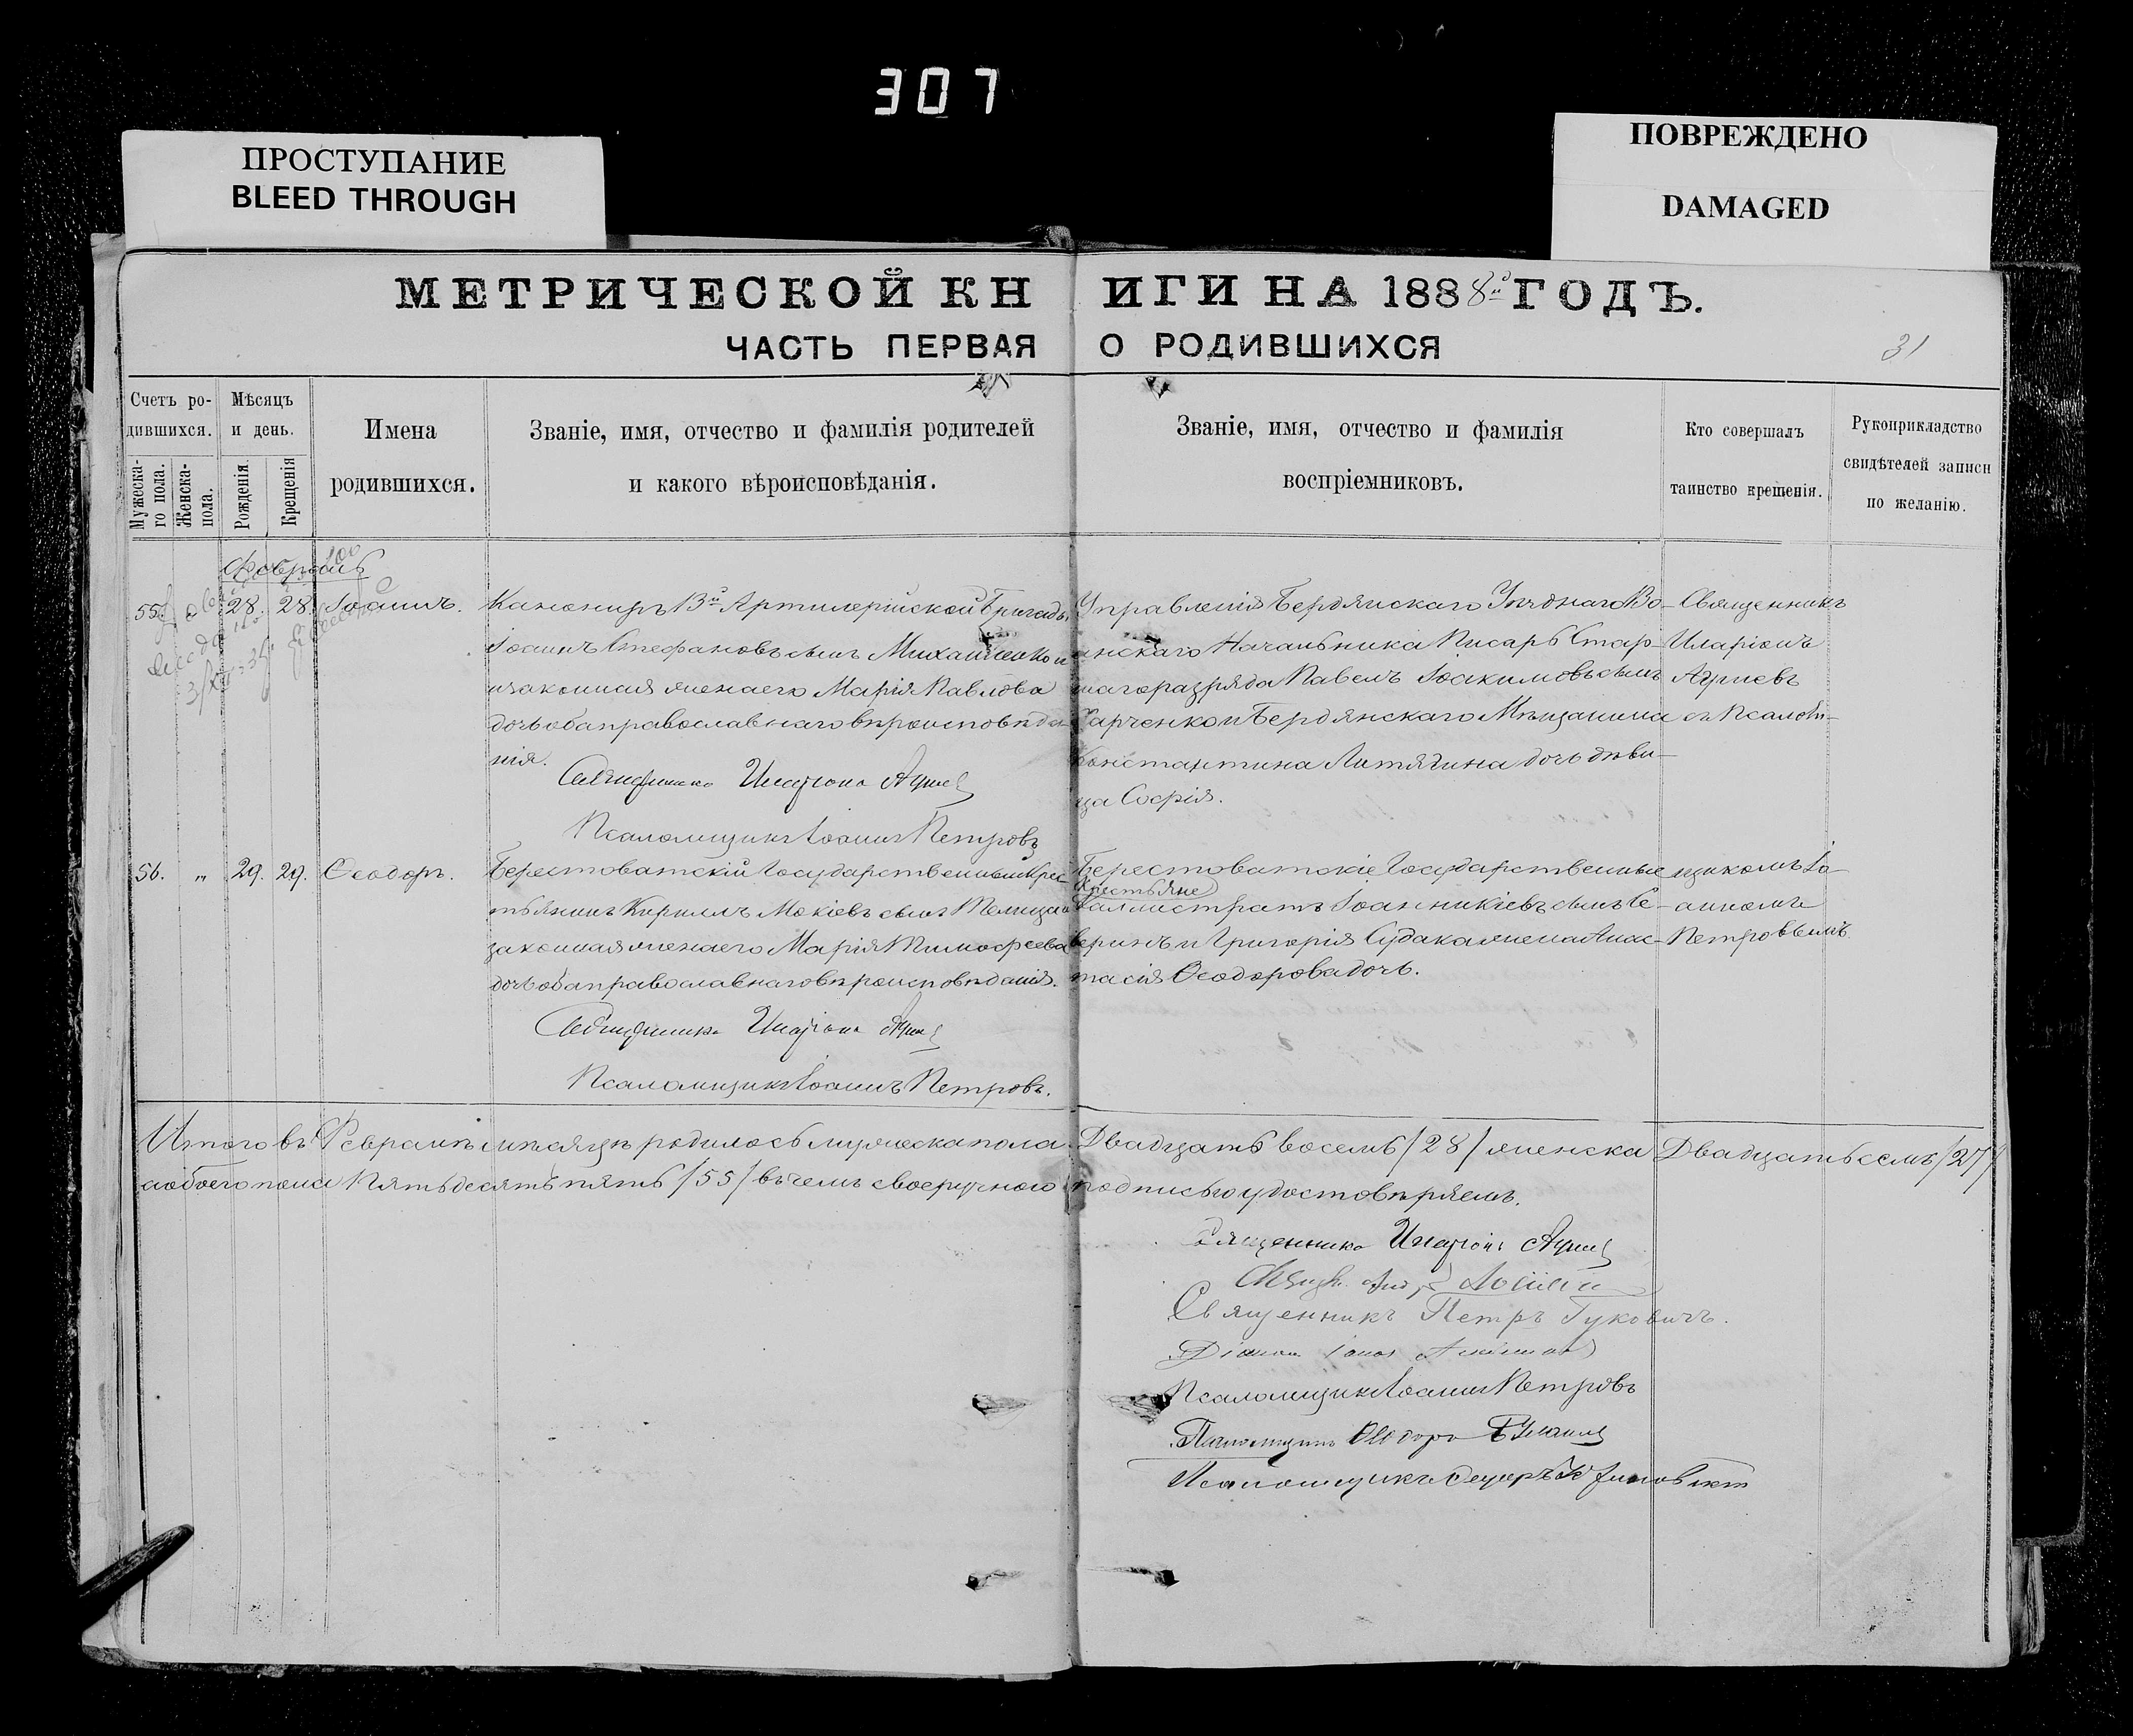 307
ПРОСТУПАНИЕ
BLEED THROUGH
ПОВРЕЖДЕНО
DAMAGED
МЕТРИЧЕСКОЙ КНИГИ НА 1888й ГОДЪ.
ЧАСТЬ ПЕРВАЯ О РОДИВШИХСЯ
31
Счетъ ро-
дившихся.
Мужеска-
го пола.
Женска-
пола.
Мѣсяцъ
и день.
Рожденія.
Крещенія
Имена
родившихся.
Званіе, имя, отчество и фамилія родителей
и какого вѣроисповѣданія.
Званіе, имя, отчество и фамилія
воспріемниковъ.
Кто совершалъ
таинство крещенія.
Рукоприкладство
свидѣтелей записи
по желанію.
Февраль
55. 28. 28. Іоаннъ.
Канониръ 13й Артилерійской Бригады
Іоаннъ Стефановъ сынъ Михайленко и
законная жена его Марія Павлова
дочь оба православнаго вѣроисповѣда-
нія.
Священникъ Иларіонъ
Псаломщикъ Іоаннъ Петровъ
Управленія Бердянскаго Уѣзднаго Во-
инскаго Начальника Писарь Стар-
шаго разряда Павелъ Іоакимовъ сынъ
Харченко и Бердянскаго Мѣщанина
Константина Литягина дочь дѣви-
ца Софія.
Священникъ
Иларіонъ
съ Псалом-
56. „ 29. 29. Ѳеодоръ.
Берестоватскій Государственный Крес-
тьянинъ Кириллъ Мокіевъ сынъ
законная жена его Марія Тимофеева
дочь оба православнаго вѣроисповѣданія.
Священникъ Иларіонъ
Псаломщикъ Іоаннъ Петровъ.
Берестоватскіе Государственные
Крестьяне
Каллистратъ Іоанникіевъ сынъ Се-
веринъ и Григорія Судака жена Анас-
тасія Ѳеодорова дочь.
щикомъ Іо-
анномъ
Петровымъ.
Итого въ Февралѣ мѣсяцѣ родилось мужеска пола Двадцать восемь /28/ женска Двадцать семь /27/
а обоего пола Пятьдесятъ пять /55/ въ чемъ своеручною подписью удостовѣряемъ.
Священникъ Иларіонъ
Священникъ Петръ Гуковичъ.
Діаконъ
Псаломщикъ Іоаннъ Петровъ
Псаломщикъ Ѳеодоръ
Псаломщикъ